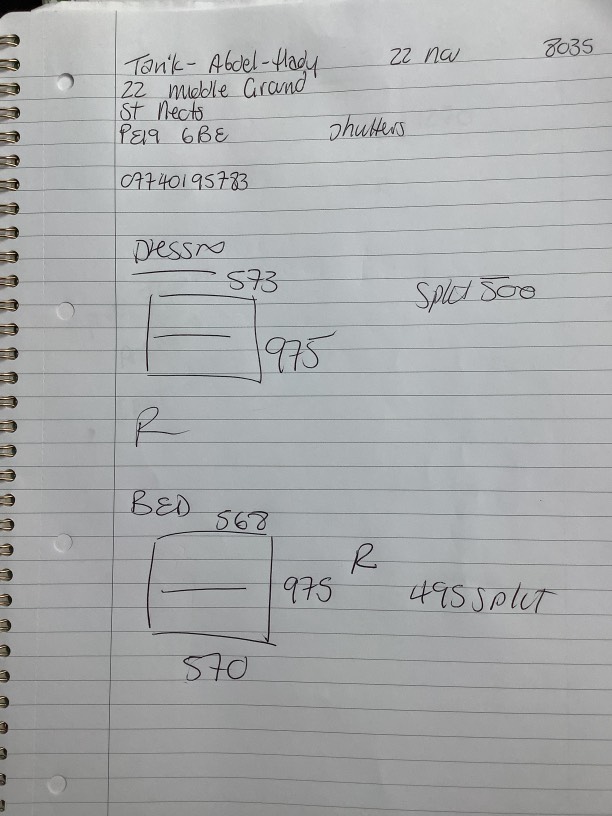 Tarik - Abdel-Hady 22 nov 8035
22 middle Grand
St Neots
PE19 6BE Shutters
07740195783
Dressno
573
Split 500
975
R
BED
568
R
975
495 split
570